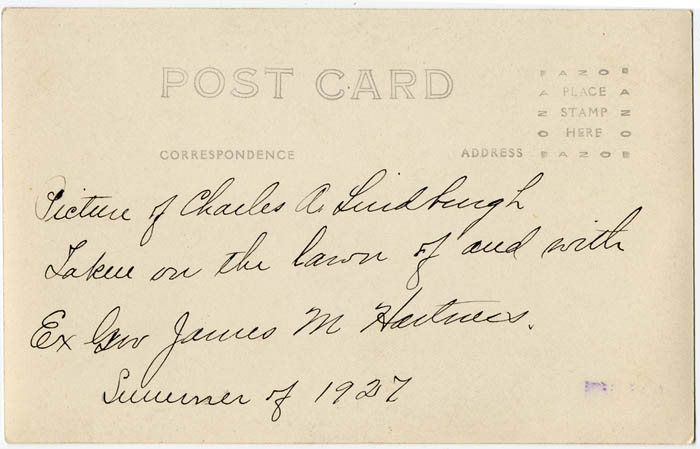 POST CARD
CORRESPONDENCE
ADDRESS
AZO
PLACE
STAMP
HERE
AZO
Picture of Charles A. Lindburgh
Taken on the lawn of and with
Ex Gov James M Hartness.
Summer of 1927